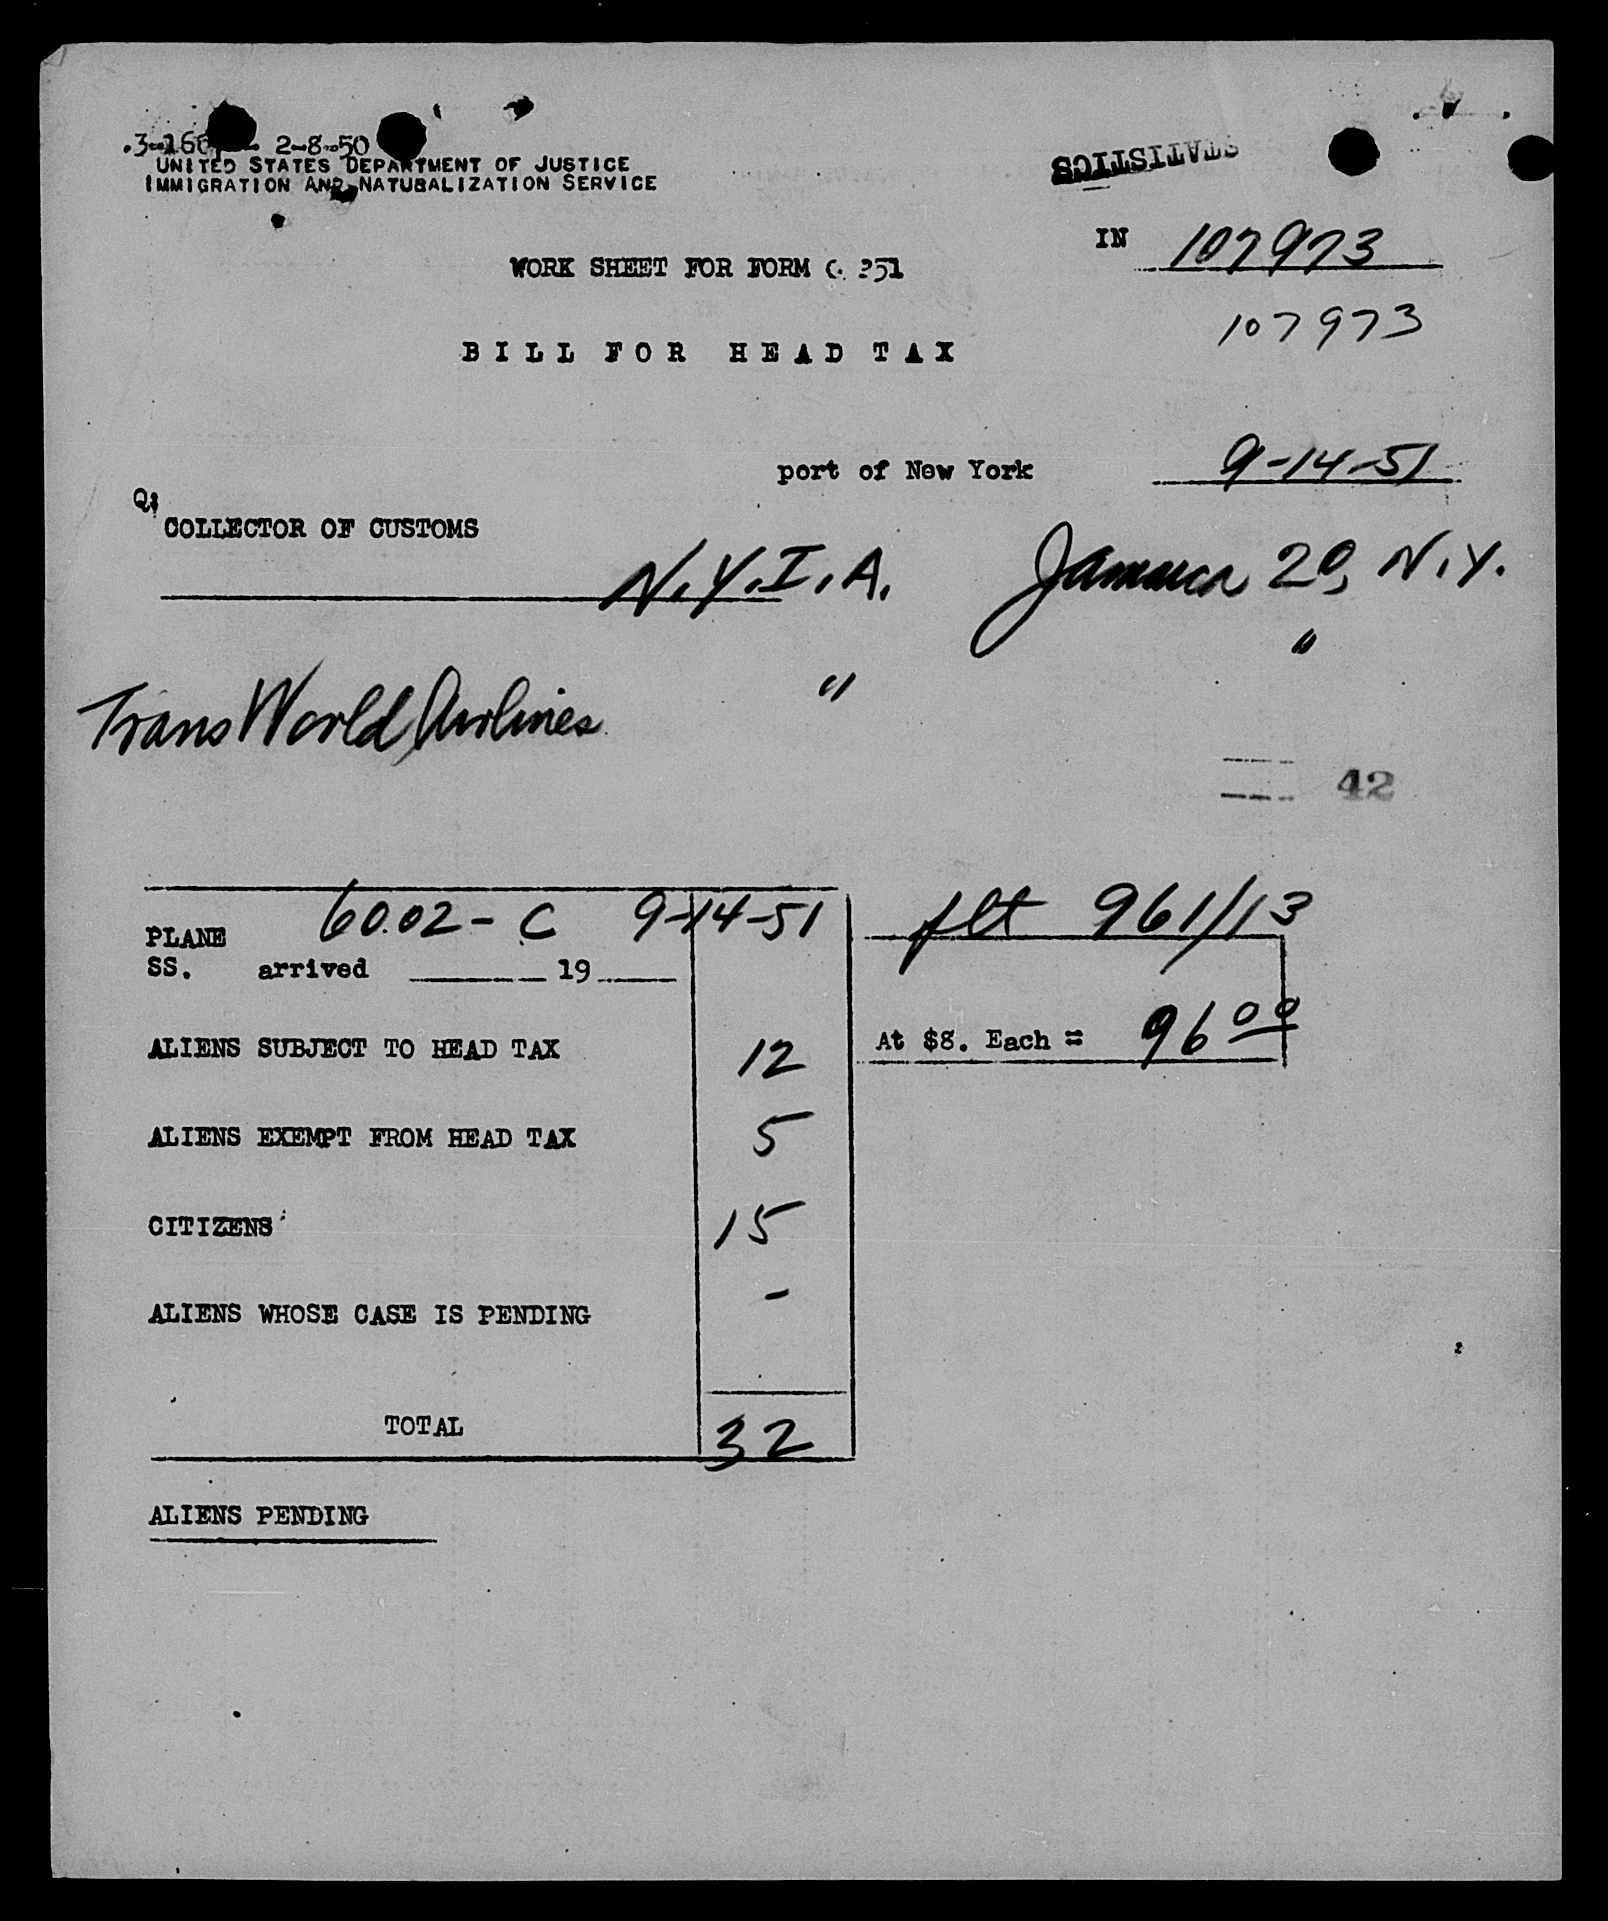 2-8-50
UNITED STATES DEPARTMENT OF JUSTICE
IMMIGRATION AND NATURALIZATION SERVICE
STATISTICS
IN 107973
WORK SHEET FOR FORM
107973
BILL FOR HEAD TAX
port of New York 9-14-51
COLLECTOR OF CUSTOMS
N.Y.I.A. Jamaica 20, N.Y.
Trans World Airlines " "
42
PLANE 6002-C 9-14-51 flt 961/13
SS. arrived 19
ALIENS SUBJECT TO HEAD TAX 12 At $8. Each = 96 00
ALIENS EXEMPT FROM HEAD TAX 5
CITIZENS 15
ALIENS WHOSE CASE IS PENDING -
TOTAL 32
ALIENS PENDING